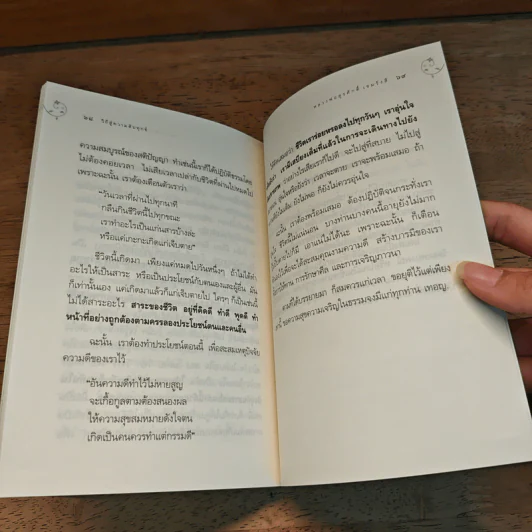 ๒๘ วิถีสู่ความสิ้นทุกข์
ความสมบูรณ์ของสติปัญญา ทำเช่นนี้เราก็ได้ปฏิบัติธรรมโดย
ไม่ต้องคอยเวลา ไม่เสียเวลาเปล่ากับชีวิตที่ผ่านไปหมดไป
เพราะฉะนั้น เราต้องเตือนตัวเราว่า
"วันเวลาที่ผ่านไปทุกนาที
กลืนกินชีวิตนี้ไปทุกขณะ
เราทำอะไรเป็นแก่นสารบ้างล่ะ
หรือแค่เกะกะเกิดแก่เจ็บตาย"
ชีวิตนี้เกิดมา เพียงแค่หมดไปวันหนึ่งๆ ถ้าไม่ได้ทำ
อะไรให้เป็นสาระ หรือเป็นประโยชน์กับตนเองและผู้อื่น มัน
ก็เท่านั้นเอง แค่เกิดมาแล้วก็แก่เจ็บตายไป ใครๆ ก็เป็นเช่นนี้
ไม่ได้สาระอะไร สาระของชีวิต อยู่ที่คิดดี ทำดี พูดดี ทำ
หน้าที่อย่างถูกต้องตามครรลองประโยชน์ตนและคนอื่น
ฉะนั้น เราต้องทำประโยชน์ตอนนี้ เพื่อสะสมเหตุปัจจัย
ความดีของเราไว้
"อันความดีทำไว้ไม่หายสูญ
จะเกื้อกูลตามต้องสนองผล
ให้ความสุขสมหมายดังใจตน
เกิดเป็นคนควรทำแต่กรรมดี"
เขมรังสี ๒๙
ชีวิตเราร่อยหรอลงไปทุกวันๆ เราอุ่นใจ
เรามีเสบียงเต็มที่แล้วในการจะเดินทางไปยัง
ว่าอย่างไรเสียเราก็ไปดี จะไปสู่ที่สบาย ไม่ไปสู่
อุ่นใจหรือยังว่า เวลาจะตาย เราจะพร้อมเสมอ ถ้า
ยังไม่พอ ก็ยังไม่ควรอุ่นใจ
ฉะนั้น เราต้องพร้อมเสมอ ต้องปฏิบัติจนกระทั่งเรา
ชีวิตนี้ไม่แน่นอน บางท่านบางคนนี้อายุยังไม่มาก
ตายไปก็มี เอาแน่ไม่ได้นะ เพราะฉะนั้น ก็เตือน
เพื่อจะได้สะสมคุณงามความดี สร้างบารมีของเรา
ให้ทาน การรักษาศีล และการเจริญภาวนา
ตามที่ได้บรรยายมา ก็สมควรแก่เวลา ขอยุติไว้แต่เพียง
นี้ ขอความสุขความเจริญในธรรมจงมีแก่ทุกท่าน เทอญ.